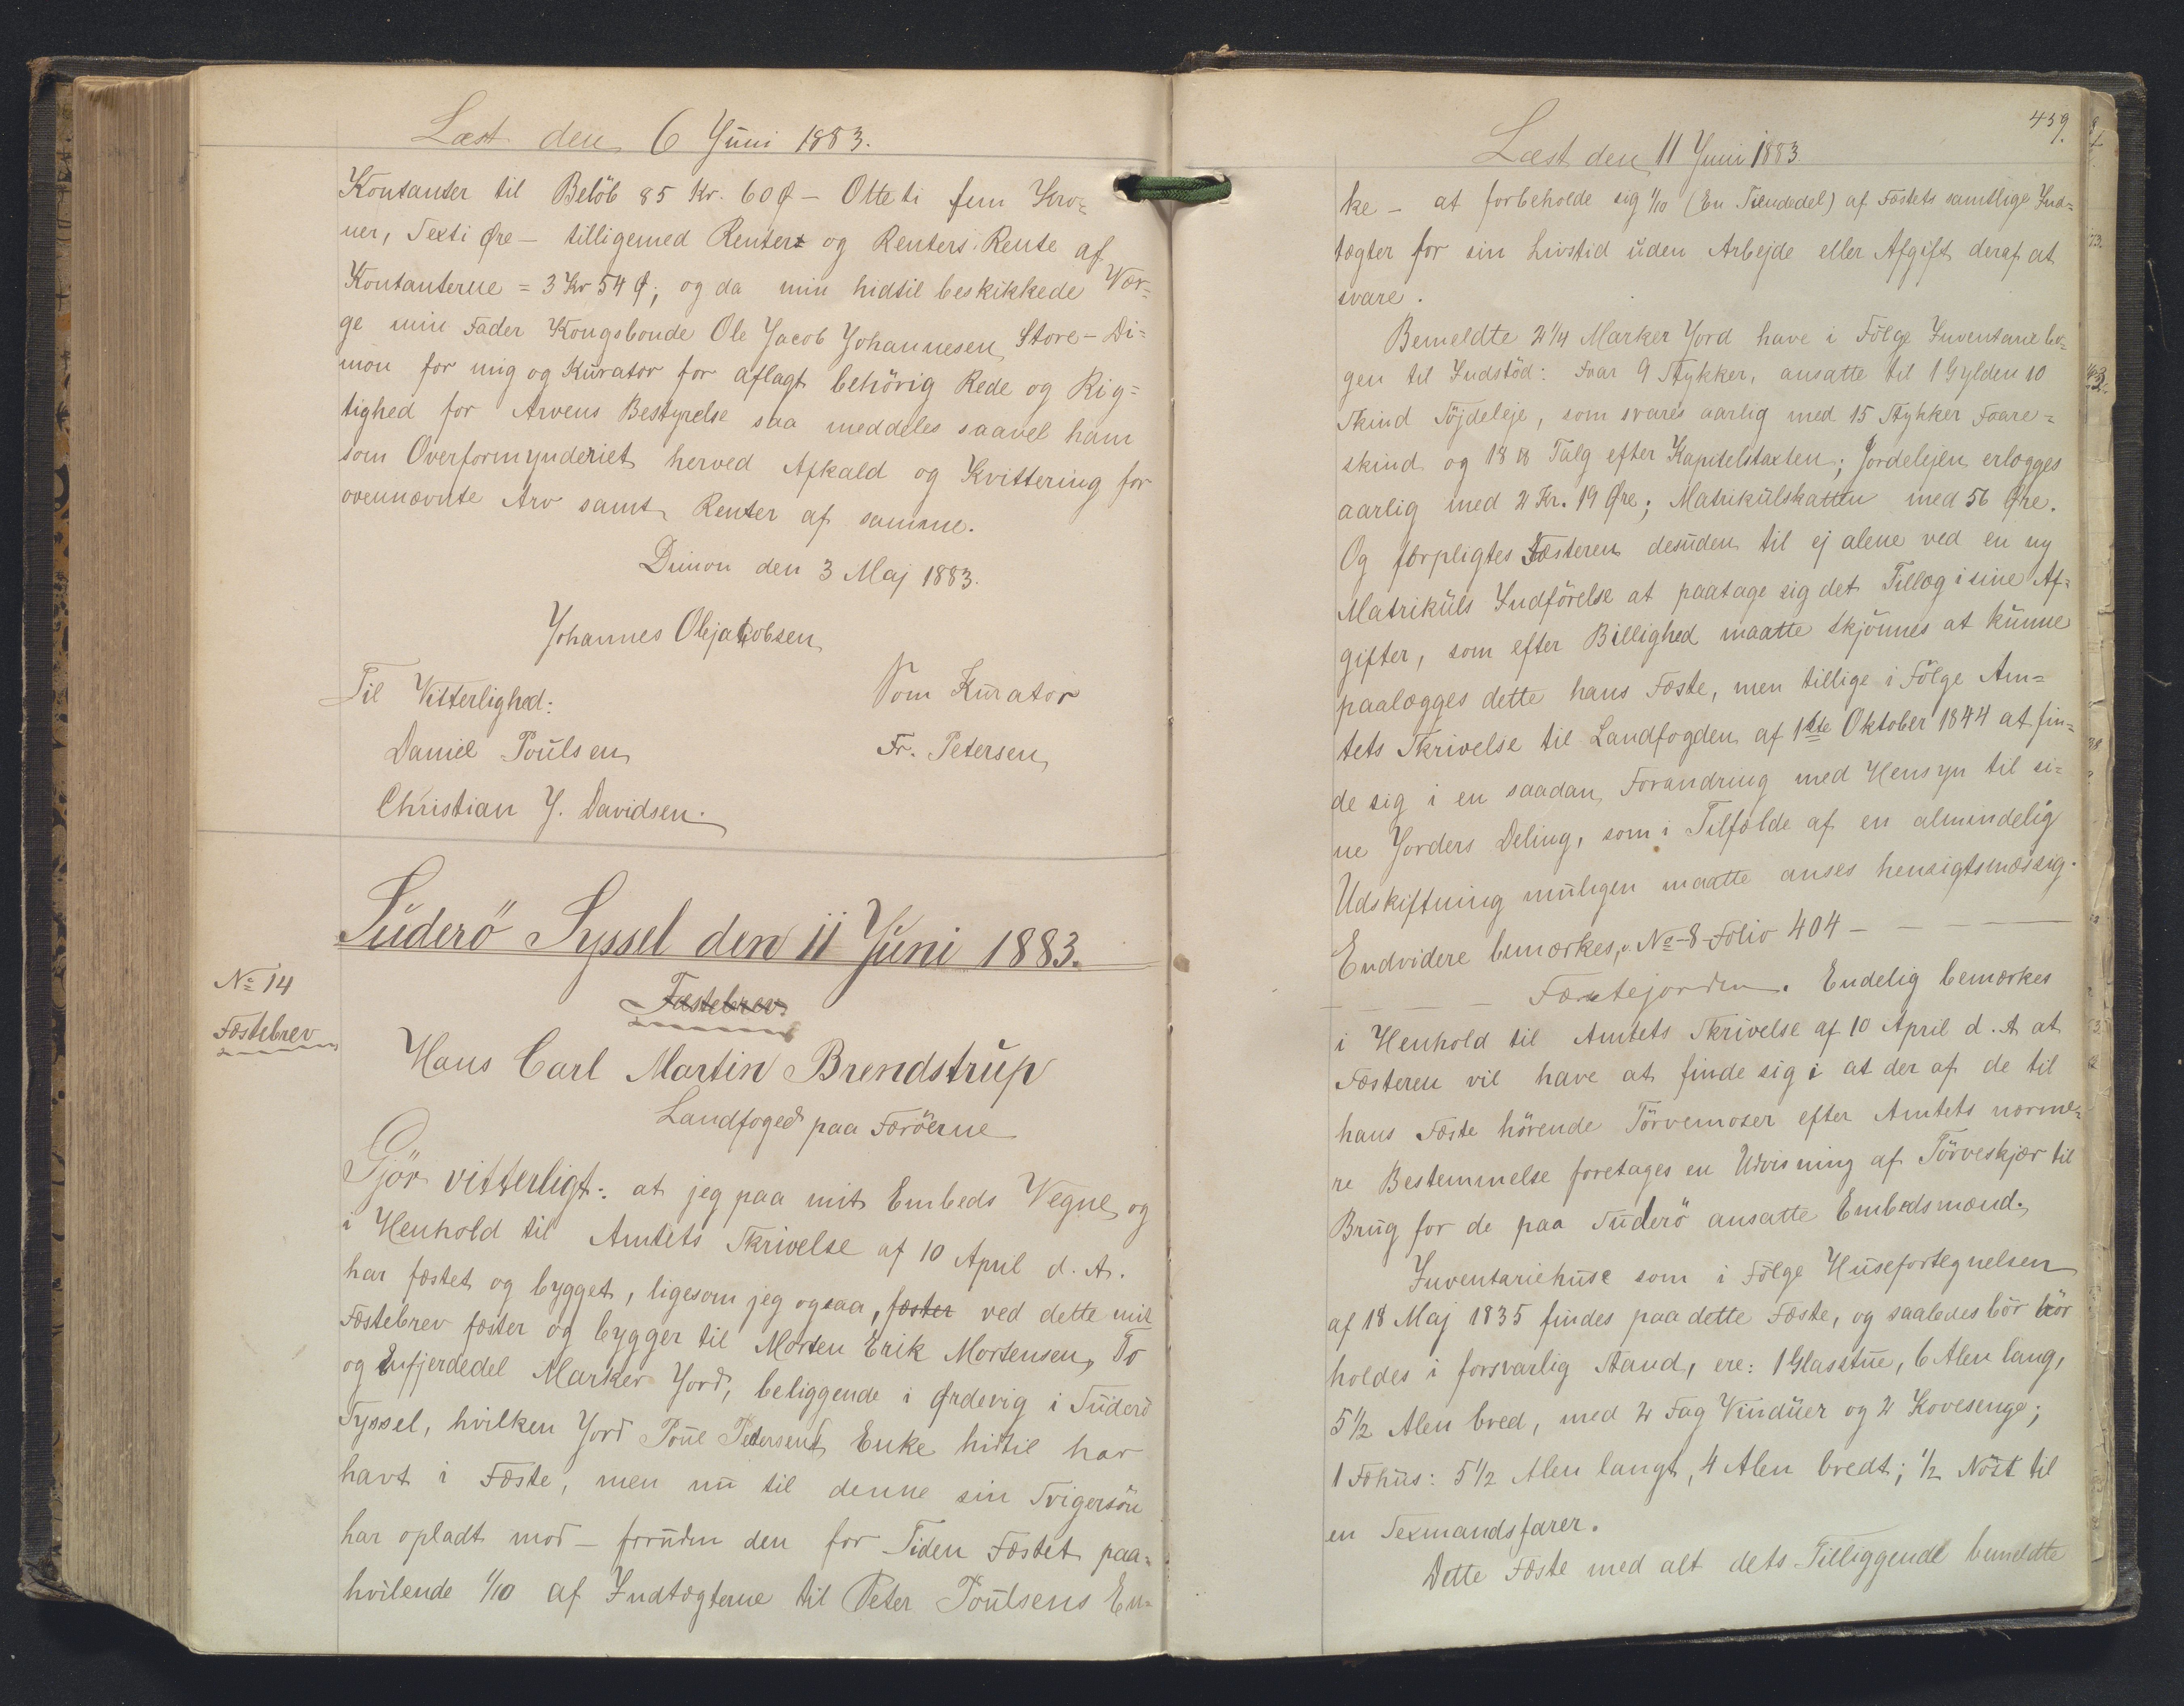 Læst den 6 Juni 1883.
Kontanter til Belöb 85 Kr. 60 Ø – Otteti fem Kro=
ner, Sexti Øre – tilligemed Renter og Renters Rente af
Kontanterne = 3 Kr 54 Ø; og da min hidtil beskikkede Vær=
ge min Fader Kongsbonde Ole Jacob Johannesen Store-Di=
mon for mig og Kurator for aflagt behörig Rede og Rig=
tighed for Arvens Bestyrelse saa meddeles saavel ham
som Overformynderiet herved Afkald og Kvittering for
ovennævnte Arv samt Renter af samme.
Dimon den 3 Maj 1883.
Johannes Olejacobsen
Til Vitterlighed:
Som Kurator
Daniel Poulsen
Fr. Petersen
Christian J. Davidsen.
Suderö Syssel den 11 Juni 1883.
No 14
Fæstebrev
Fæstebrev
Hans Carl Martin Brendstrup
Landfoged paa Færöerne
Gjör vitterligt: at jeg paa mit Embeds Vegne og
i Henhold til Amtets Skrivelse af 10 April d. A.
har fæstet og bygget, ligesom jeg ogsaa, fæster ved dette mit
Fæstebrev fæster og bygger til Morten Erik Mortensen, To
og Enfjerdedel Marker Jord, beliggende i Ørdevig i Suderö
Syssel, hvilken Jord Poul Pedersens Enke hidtil har
havt i Fæste, men nu til denne sin Svigersön
har opladt mod – foruden den for Tiden Fæstet paa=
hvilende 1/10 af Indtægterne til Peter Poulsens En=
459.
Læst den 11 Juni 1883.
ke – at forbeholde sig 1/10 (En Tiendedel) af Fæstets samtlige Ind=
tægter for sin Livstid uden Arbejde eller Afgift deraf at
svare.
Bemeldte 2 1/4 Marker Jord have i Fölge Inventariebo=
gen til Indstöd: Faar 9 Stykker, ansatte til 1 Gylden 10
Skind Töjdeleje, som svares aarlig med 15 Stykker Foare=
skind og 18 ℔ Talg efter Kapitelstaxten; Jordelejen erlægges
aarlig med 2 Kr. 19 Øre; Matrikulskatten med 56 Øre.
Og forpligtes Fæsteren desuden til ej alene ved en ny
Matrikuls Indförelse at paatage sig det Tillæg i sine Af=
gifter, som efter Billighed maatte skjönnes at kunne
paalægges dette hans Fæste, men tillige i Fölge Am=
tets Skrivelse til Landfogden af 1ste Oktober 1844 at fin=
de sig i en saadan Forandring med Hensyn til si=
ne Jorders Deling, som i Tilfælde af en almindelig
Udskiftning muligen maatte anses hensigtsmæssig.
Endvidere bemærkes, v. No 8 Folio 404 – – – –
– – – Fæstejorden. Endelig bemærkes
i Henhold til Amtets Skrivelse af 10 April d. A at
Fæsteren vil have at finde sig i at der af de til
hans Fæste hörende Törvemoser efter Amtets nærme=
re Bestemmelse foretages en Udvisning af Törveskjær til
Brug for de paa Suderö ansatte Embedsmænd.
Inventariehuse som i Fölge Husefortegnelsen
af 18 Maj 1835 findes paa dette Fæste, og saaledes bör bör
holdes i forsvarlig Stand, ere: 1 Glasstue, 6 Alen lang,
5 1/2 Alen bred, med 2 Fag Vinduer og 2 Kovesenge;
1 Fæhus: 5 1/2 Alen langt, 4 Alen bredt; 1/2 Nöst til
en Sexmandsfarer.
Dette Fæste med alt dets Tilliggende bemeldte